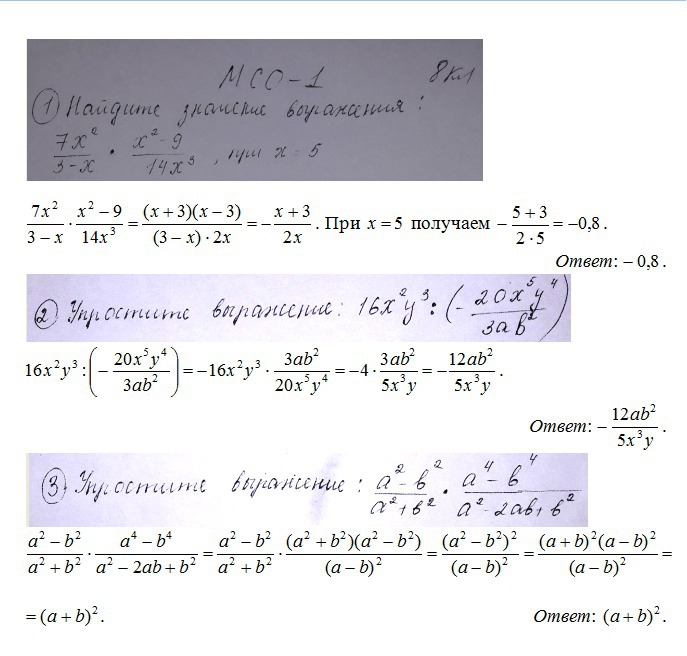 МСО-1 8кл
① Найдите значение выражения:
7x²/(3-x) · (x²-9)/(14x³), при x = 5
7x²/(3−x) · (x²−9)/(14x³) = (x+3)(x−3)/((3−x)·2x) = −(x+3)/(2x). При x=5 получаем −(5+3)/(2·5) = −0,8.
Ответ: −0,8.
② Упростите выражение: 16x²y³ : (−20x⁵y⁴/(3ab²))
16x²y³ : (−20x⁵y⁴/(3ab²)) = −16x²y³ · 3ab²/(20x⁵y⁴) = −4 · 3ab²/(5x³y) = −12ab²/(5x³y).
Ответ: −12ab²/(5x³y).
③ Упростите выражение: (a²-b²)/(a²+b²) · (a⁴-b⁴)/(a²-2ab+b²)
(a²−b²)/(a²+b²) · (a⁴−b⁴)/(a²−2ab+b²) = (a²−b²)/(a²+b²) · (a²+b²)(a²−b²)/(a−b)² = (a²−b²)²/(a−b)² = (a+b)²(a−b)²/(a−b)² =
= (a+b)². Ответ: (a+b)².